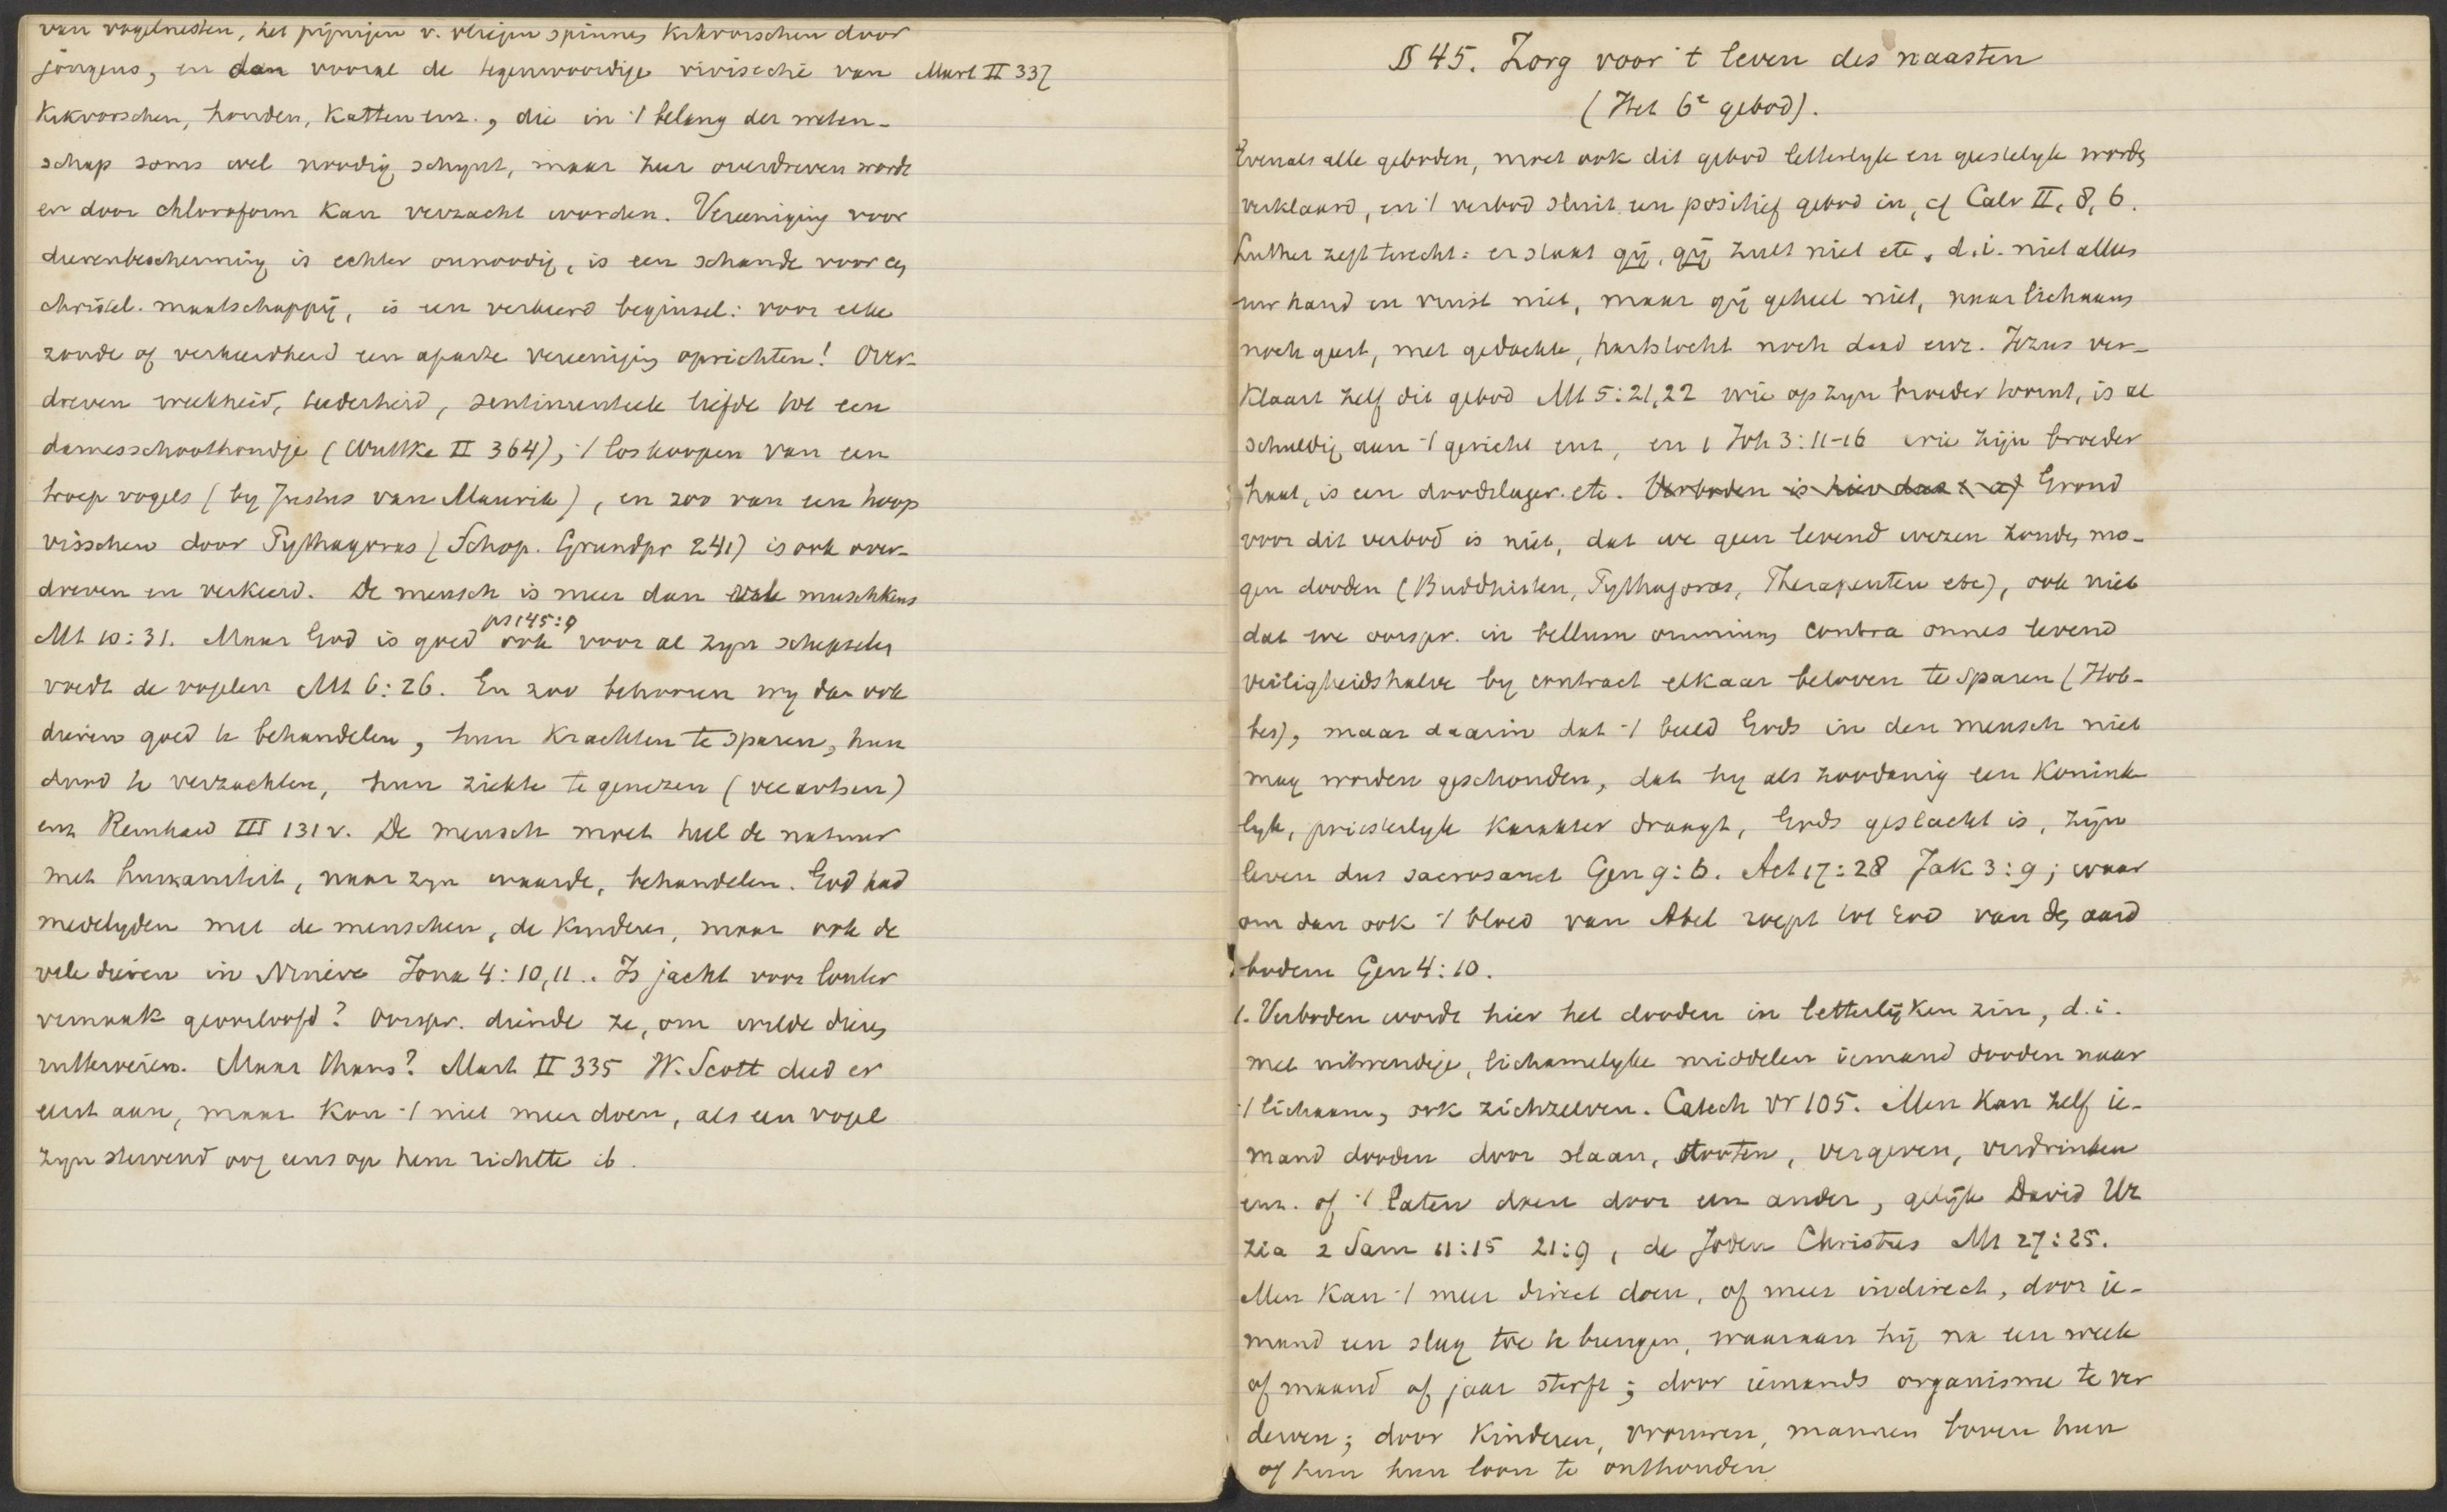 van vogelnesten, het pijnigen v. vliegen spinnen kikvorschen door
jongens, en dan vooral de tegenwoordige vivisectie van Mart II 337
kikvorschen, honden, katten enz., die in 't belang der weten-
schap soms wel noodig schynt, maar zeer overdreven wordt
en door chloroform kan verzacht worden. Vereeniging voor
dierenbescherming is echter onnoodig, is een schande voor een
christel. maatschappij, is een verkeerd beginsel: voor elke
zonde of verkeerdheid een aparte vereeniging oprichten! Over-
dreven weekheid, teederheid, sentimenteele liefde tot een
damesschoothondje (Wuttke II 364), 't loskoopen van een
troep vogels (by Justus van Maurik), en zoo van een hoop
visschen door Pythagoras (Schop. Grundpr 241) is ook over-
dreven en verkeerd. De mensch is meer dan vele muschkens
Mt 10:31. Maar God is goed ook voor al zyn schepselen
ps 145:9
voedt de vogelen Mt 6:26. En zoo behooren wy dan ook
dieren goed te behandelen, hun krachten te sparen, hun
dood te verzachten, hun ziekte te genezen (veeartsen)
enz Reinhard III 131 v. De mensch moet heel de natuur
met humaniteit, naar zyn waarde, behandelen. God had
medelyden met de menschen, de kinderen, maar ook de
vele dieren in Nineve Jona 4:10,11.. Is jacht voor louter
vermaak geoorloofd? Oorspr. diende ze, om wilde dieren
uitteroeien. Maar thans? Mart II 335 W. Scott deed er
eerst aan, maar kon 't niet meer doen, als een vogel
zyn stervend oog eens op hem richtte ib.
§ 45. Zorg voor 't leven des naasten
(Het 6e gebod).
Evenals alle geboden, moet ook dit gebod letterlyk en geestelyk worden
verklaard, en 't verbod sluit een positief gebod in, cf Calv II, 8, 6.
Luther zegt terecht: er staat gij, gij zult niet etc, d.i. niet alleen
uw hand en vuist niet, maar gij geheel niet, naar lichaam
noch geest, met gedachte, hartstocht noch daad enz. Jezus ver-
klaart zelf dit gebod Mt 5:21,22 wie op zyn broeder toornt, is al
schuldig aan 't gericht enz, en 1 Joh 3:11-16 wie zijn broeder
haat, is een doodslager etc. Verboden is hier dus 1. a) Grond
voor dit verbod is niet, dat we geen levend wezen zouden mo-
gen dooden (Buddhisten, Pythagoras, Therapeuten etc), ook niet
dat we oorspr. in bellum omnium contra omnes levend
veiligheidshalve by contract elkaar beloven te sparen (Hob-
bes), maar daarin dat 't beeld Gods in den mensch niet
mag worden geschonden, dat hy als zoodanig een konink-
lyk, priesterlyk karakter draagt, Gods geslacht is, zijn
leven dus sacrosanct Gen 9:6. Act 17:28 Jak 3:9; waar
om dan ook 't bloed van Abel roept tot God van den aard
bodem Gen 4:10.
1. Verboden wordt hier het dooden in letterlijken zin, d.i.
met uitwendige, lichamelyke middelen iemand dooden naar
't lichaam, ook zichzelven. Catech vr 105. Men kan zelf ie-
mand dooden door slaan, stooten, vergeven, verdrinken
enz. of 't laten doen door een ander, gelijk David Ur
zia 2 Sam 11:15 21:9, de Joden Christus Mt 27:25.
Men kan 't meer direct doen, of meer indirect, door ie-
mand een slag toe te brengen, waaraan hij na een week
of maand of jaar sterft; door iemands organisme te ver
derven; door kinderen, vrouwen, mannen boven hun
of hun hun loon te onthouden